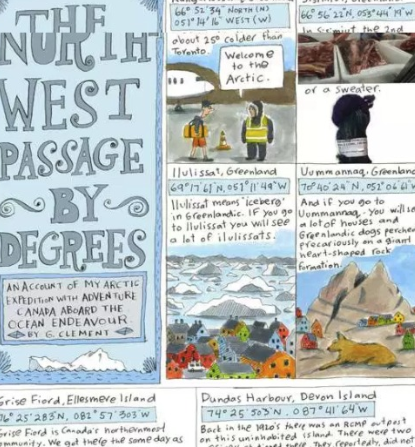 THE
NORTH
WEST
PASSAGE
BY
DEGREES
AN ACCOUNT OF MY ARCTIC
EXPEDITION WITH ADVENTURE
CANADA ABOARD THE
OCEAN ENDEAVOUR
BY G. CLEMENT
66° 52' 34" NORTH (N)
051° 14' 16" WEST (W)
about 25° colder than
Toronto.
Welcome
to the
Arctic.
66° 56 22 N, 053° 44' 19" W
In the 2nd
or a sweater.
Ilulissat, Greenland
69° 17' 61" N, 051° 11' 49" W
Ilulissat means 'iceberg'
in Greenlandic. IF you go
to Ilulissat you will see
a lot of ilulissats.
Uummannaq, Greenland
70° 40' 24" N, 052° 06' 61"
And if you go to
Uummannaq, you will see
a lot of houses and
Greenlandic dogs perched
precariously on a giant
heart-shaped rock
formation.
Grise Fiord, Ellesmere Island
76° 25' 283 N, 082° 57' 303 W
Grise Fiord is Canada's northernmost
community. We got there the same day as
Dundas Harbour, Devon Island
74° 25' 503 N, 087° 41' 64 W
Back in the 1920's there was an RCMP outpost
on this uninhabited island. There were two
there. They reportedly did not